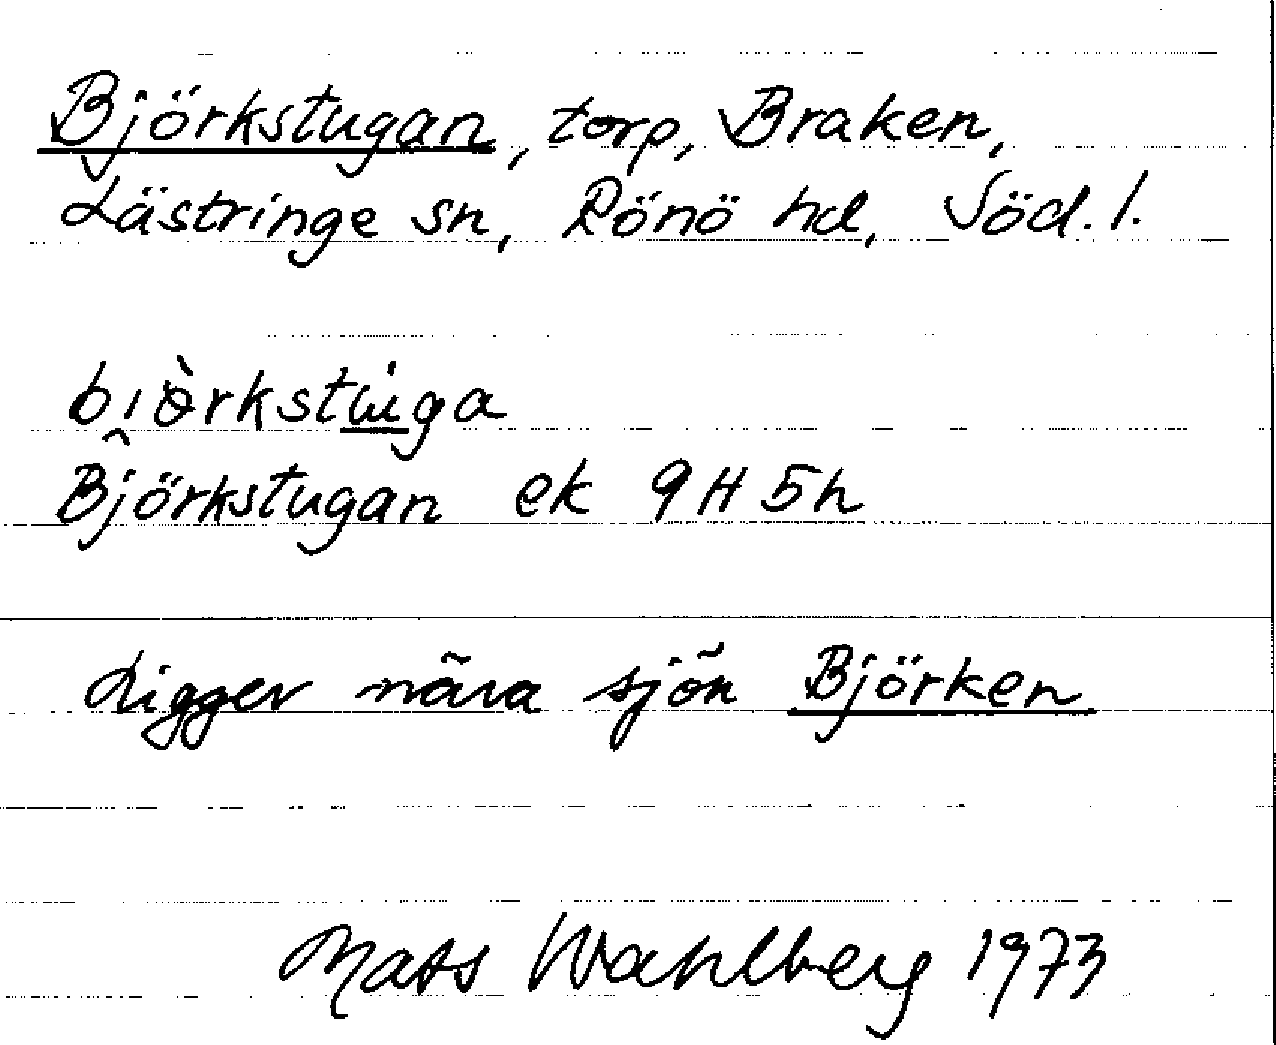 Björkstugan, torp, Braken,
Lästringe sn, Rönö hd, Söd. l.
bi̯òrkstu̇ga
Björkstugan ek 9H5h
Ligger nära sjön Björken
Mats Wahlberg 1973